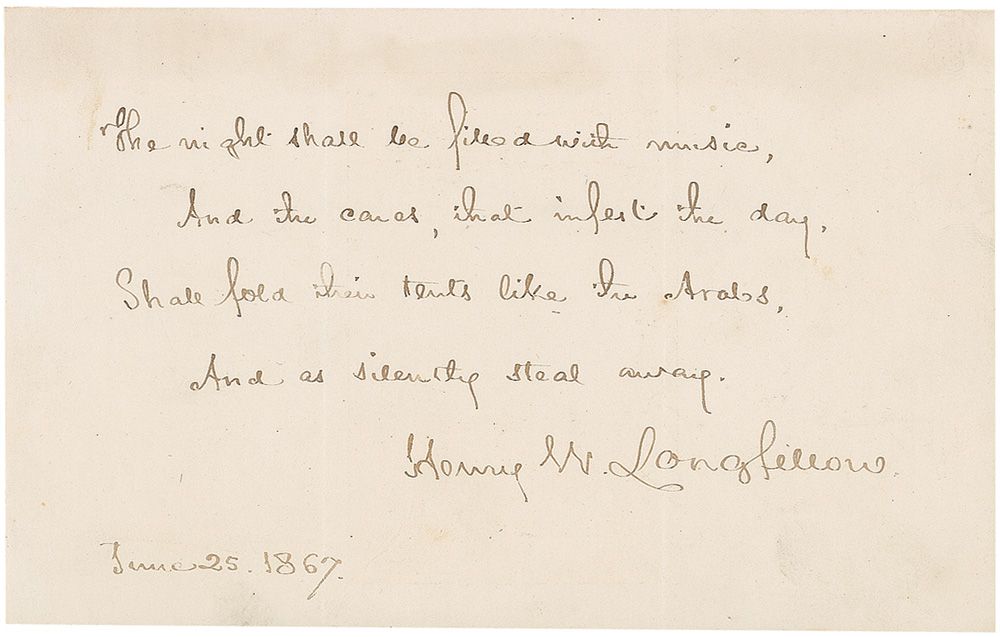 The night shall be filled with music,
And the cares, that infest the day,
Shall fold their tents like the Arabs,
And as silently steal away.
Henry W. Longfellow.
June 25. 1867.